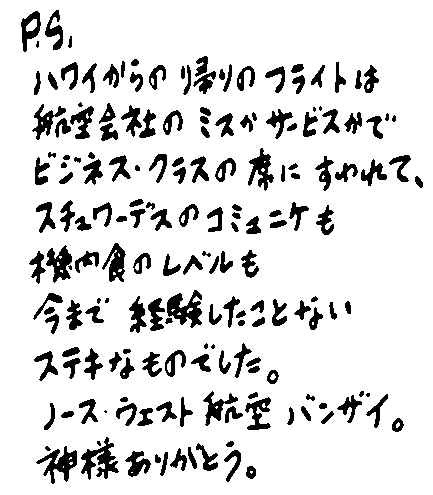 P.S.
ハワイからの帰りのフライトは
航空会社のミスかサービスかで
ビジネス・クラスの席にすわれて、
スチュワーデスのコミュニケも
機内食のレベルも
今まで経験したことない
ステキなものでした。
ノース・ウェスト航空バンザイ。
神様ありがとう。